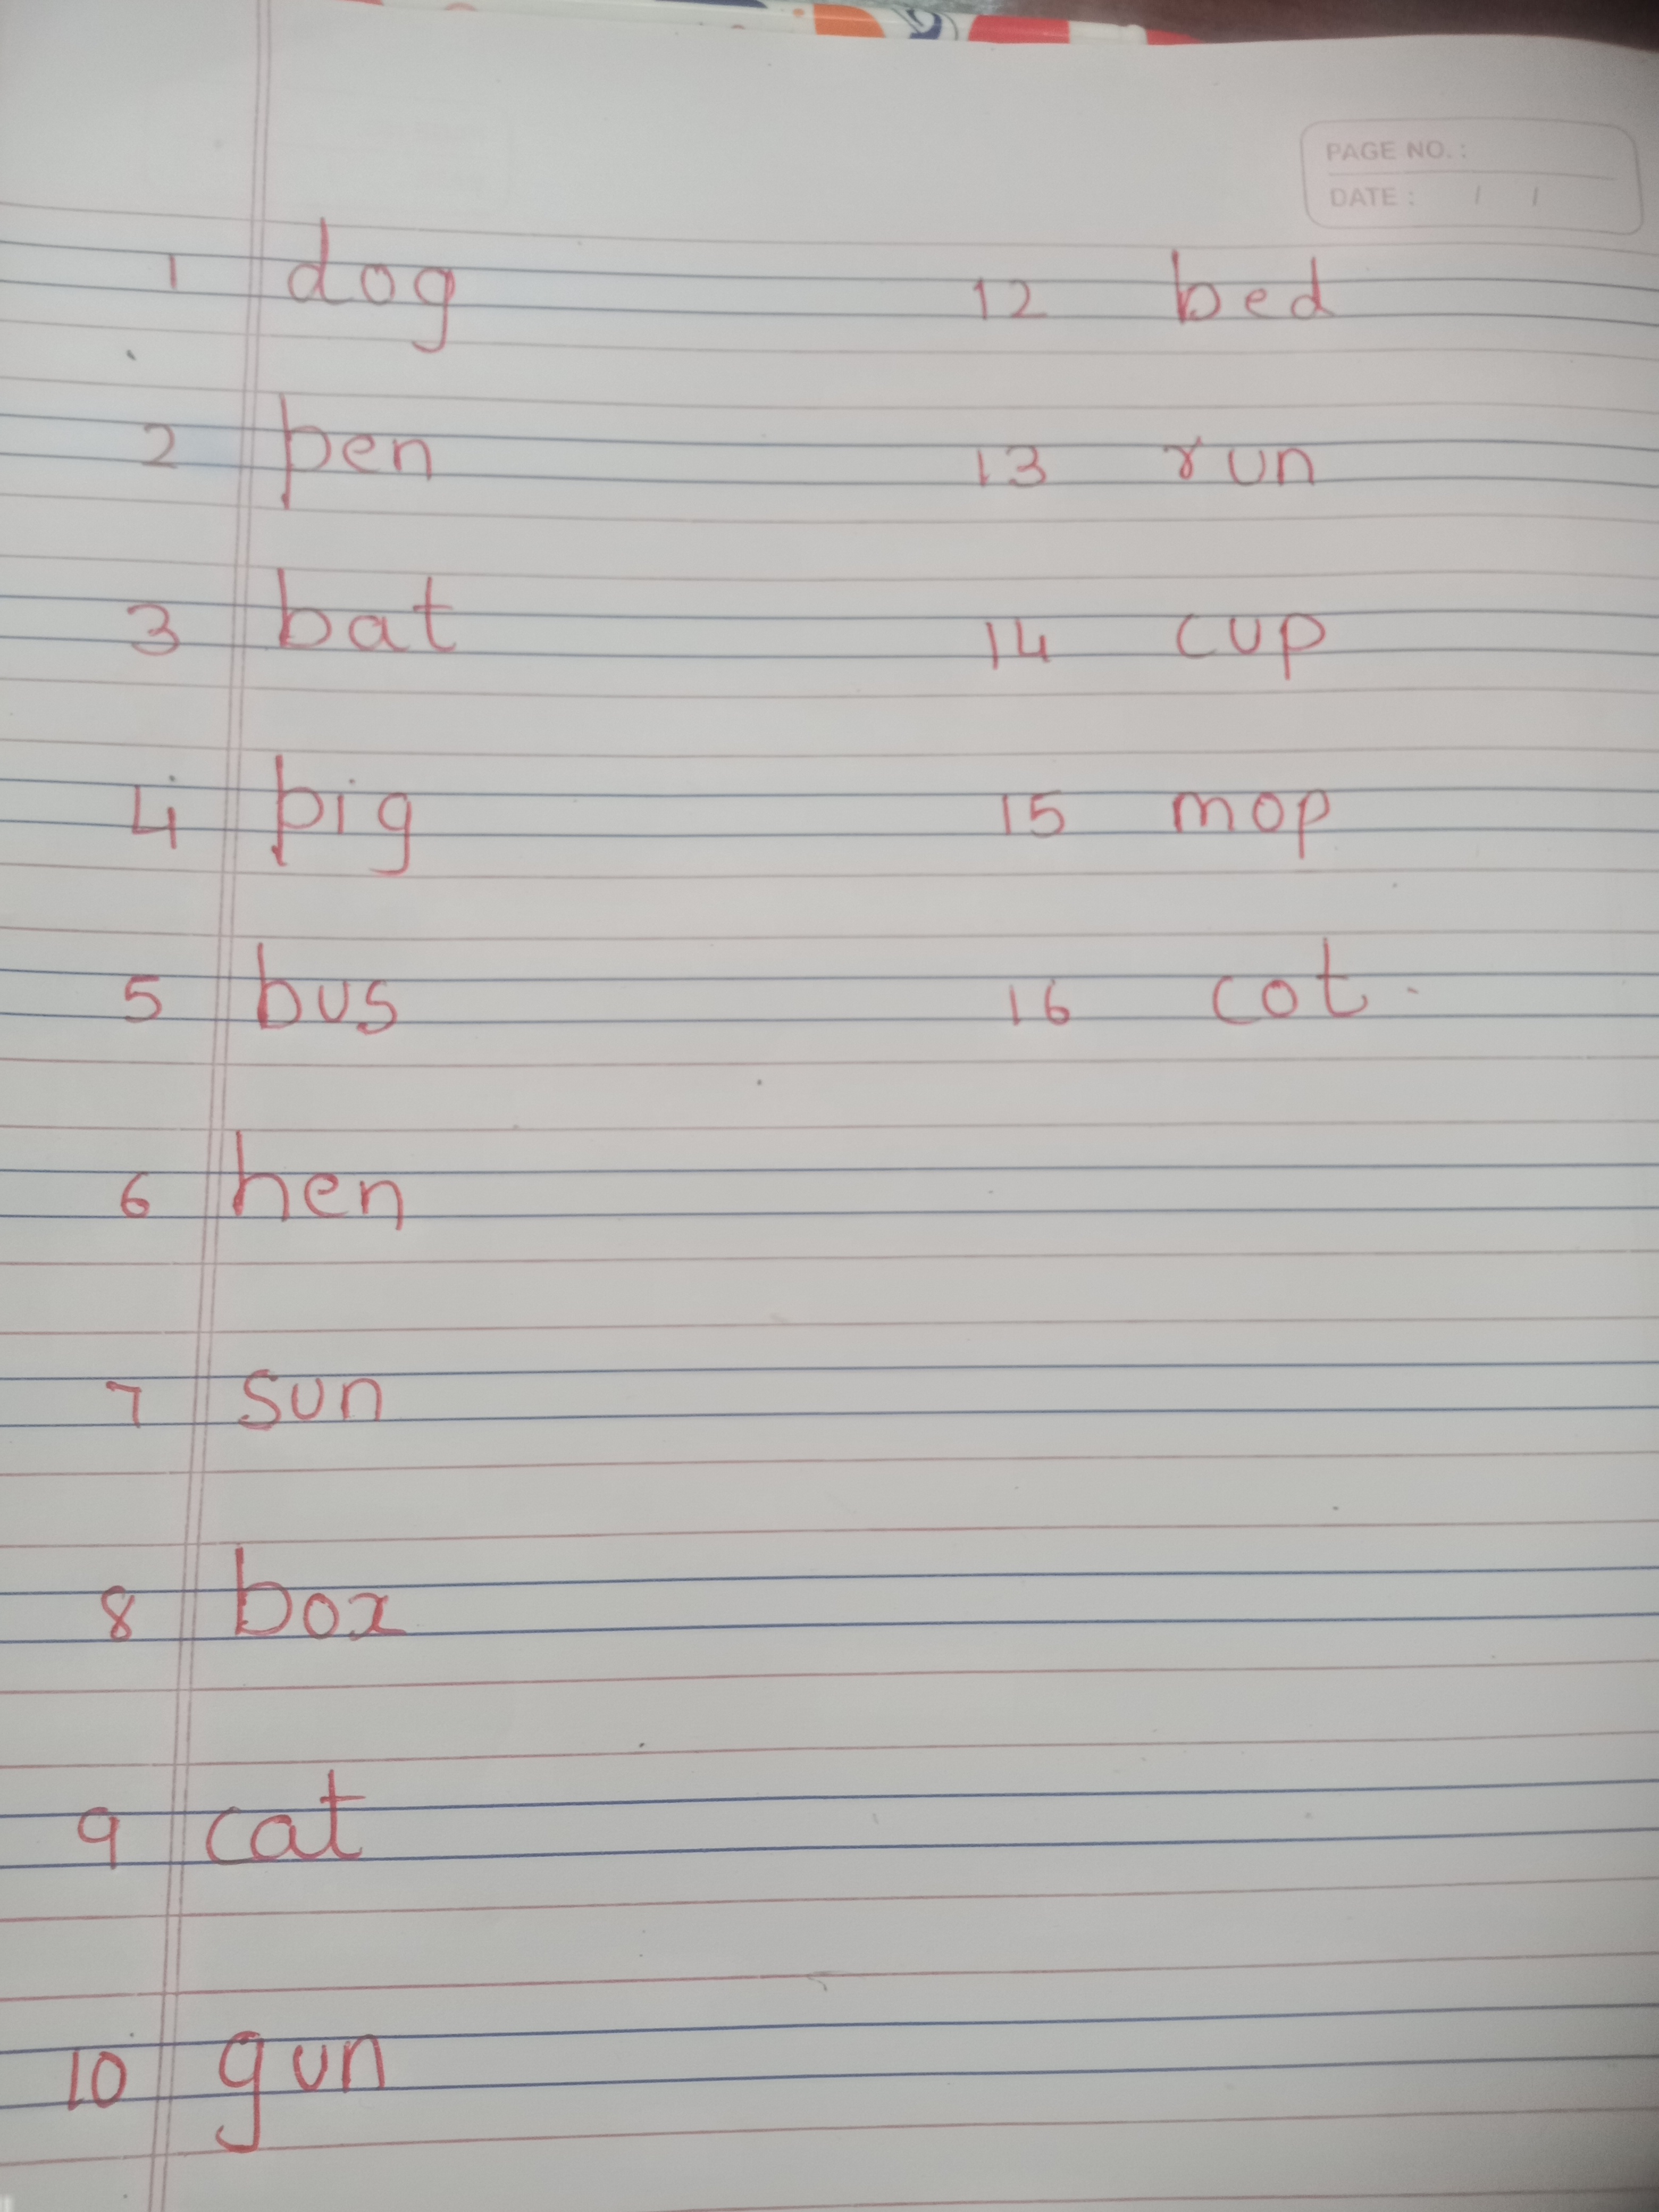 PAGE NO. :
DATE : / /
1 dog
2 pen
3 bat
4 pig
5 bus
6 hen
7 sun
8 box
9 cat
10 gun
12 bed
13 run
14 cup
15 mop
16 cot.